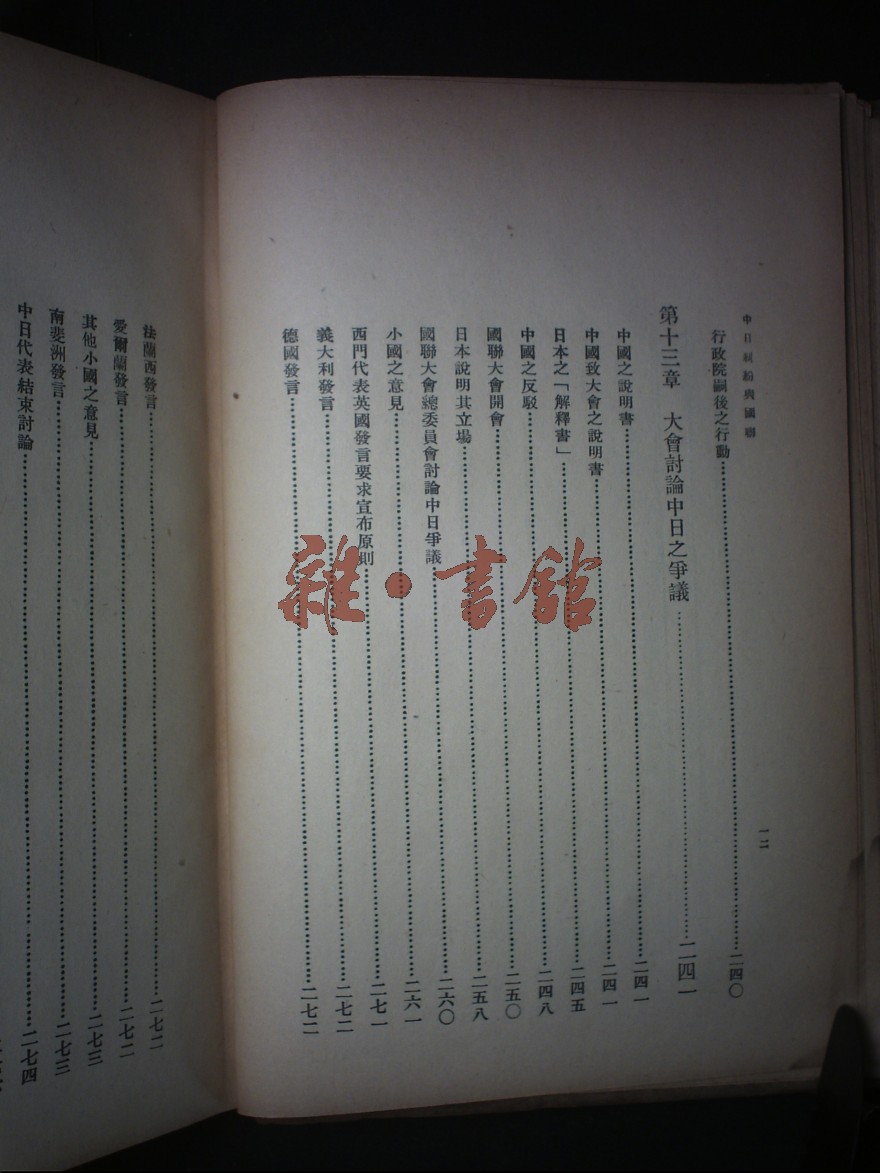 中日糾紛與國聯
一二
行政院嗣後之行動……二四〇
第十三章　大會討論中日之爭議……二四一
中國之說明書……二四一
中國致大會之說明書……二四一
日本之「解釋書」……二四五
中國之反駁……二四八
國聯大會開會……二五〇
日本說明其立場……二五八
國聯大會總委員會討論中日爭議……二六〇
小國之意見……二六一
西門代表英國發言要求宣布原則……二七一
義大利發言……二七二
德國發言……二七二
法蘭西發言……二七二
愛爾蘭發言……二七二
其他小國之意見……二七三
南斐洲發言……二七三
中日代表結束討論……二七四
雜·書館